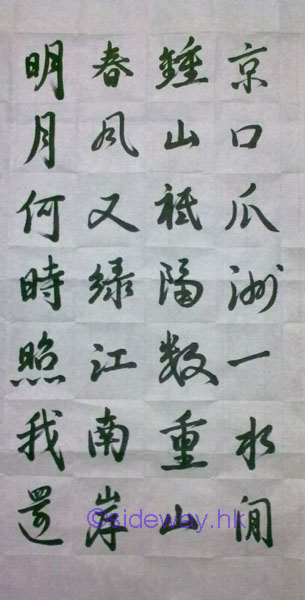 京口爪洲一水間
鍾山祗隔數重山
春風又綠江南岸
明月何時照我還
©sideway.hk